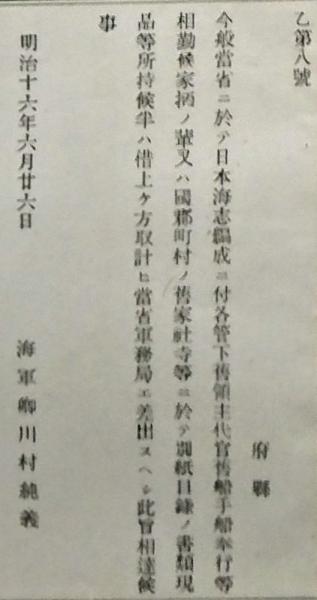 乙第八號
府縣
今般當省ニ於テ日本海志編成ニ付各管下舊領主代官舊船手船奉行等
相勤候家柄ノ輩又ハ國郡町村ノ舊家社寺等ニ於テ別紙目録ノ書類現
品等所持候半ハ借上ケ方取計ヒ當省軍務局エ差出スヘシ此旨相達候
事
明治十六年六月廿六日
海軍卿川村純義